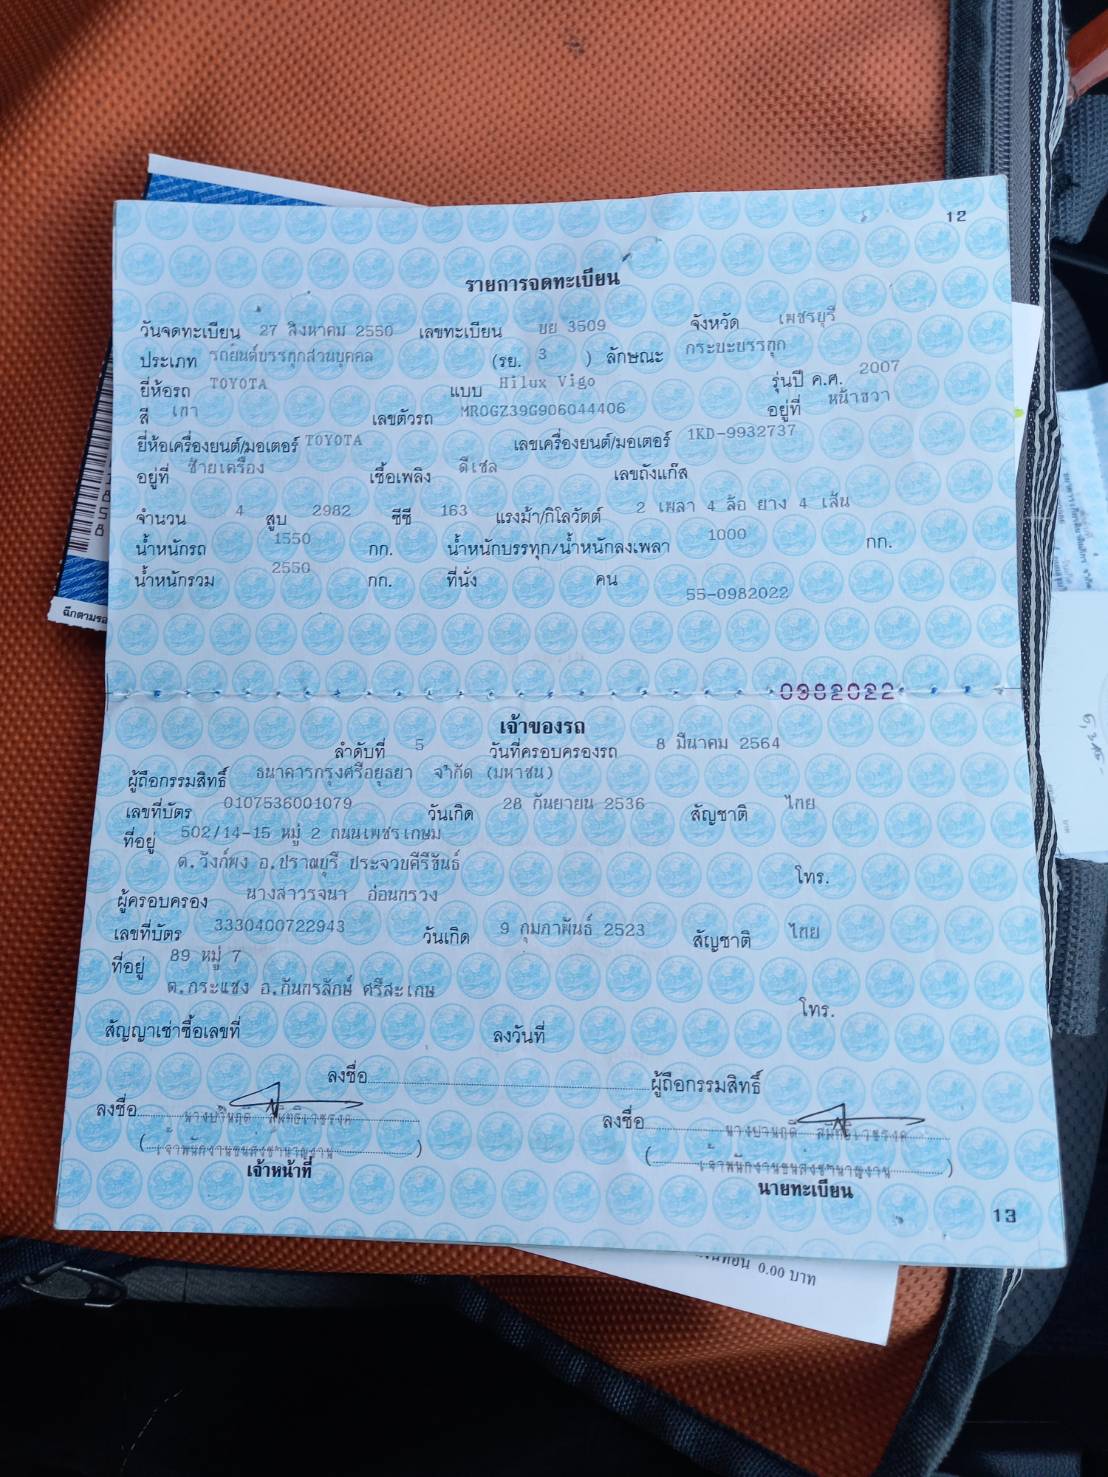 12
รายการจดทะเบียน
วันจดทะเบียน 27 สิงหาคม 2550 เลขทะเบียน บย 3509 จังหวัด เพชรบุรี
ประเภท รถยนต์บรรทุกส่วนบุคคล (รย. 3 ) ลักษณะ กระบะบรรทุก
ยี่ห้อรถ TOYOTA แบบ Hilux Vigo รุ่นปี ค.ศ. 2007
สี เทา เลขตัวรถ MR0GZ39G906044406 อยู่ที่ หน้าขวา
ยี่ห้อเครื่องยนต์/มอเตอร์ TOYOTA เลขเครื่องยนต์/มอเตอร์ 1KD-9932737
อยู่ที่ ซ้ายเครื่อง เชื้อเพลิง ดีเซล เลขถังแก๊ส
จำนวน 4 สูบ 2982 ซีซี 163 แรงม้า/กิโลวัตต์ 2 เพลา 4 ล้อ ยาง 4 เส้น
น้ำหนักรถ 1550 กก. น้ำหนักบรรทุก/น้ำหนักลงเพลา 1000 กก.
น้ำหนักรวม 2550 กก. ที่นั่ง คน
55-0982022
0982022
เจ้าของรถ
ลำดับที่ 5 วันที่ครอบครองรถ 8 มีนาคม 2564
ผู้ถือกรรมสิทธิ์ ธนาคารกรุงศรีอยุธยา จำกัด (มหาชน)
เลขที่บัตร 0107536001079 วันเกิด 28 กันยายน 2536 สัญชาติ ไทย
ที่อยู่ 502/14-15 หมู่ 2 ถนนเพชรเกษม
ต.วังก์พง อ.ปราณบุรี ประจวบคีรีขันธ์ โทร.
ผู้ครอบครอง นางสาวรจนา อ่อนทรวง
เลขที่บัตร 3330400722943 วันเกิด 9 กุมภาพันธ์ 2523 สัญชาติ ไทย
ที่อยู่ 89 หมู่ 7
ต.กระแชง อ.กันทรลักษ์ ศรีสะเกษ โทร.
สัญญาเช่าซื้อเลขที่ ลงวันที่
ลงชื่อ ผู้ถือกรรมสิทธิ์
ลงชื่อ ลงชื่อ
(เจ้าพนักงานขนส่งชำนาญงาน) (เจ้าพนักงานขนส่งชำนาญงาน)
เจ้าหน้าที่ นายทะเบียน
13
0.00 บาท